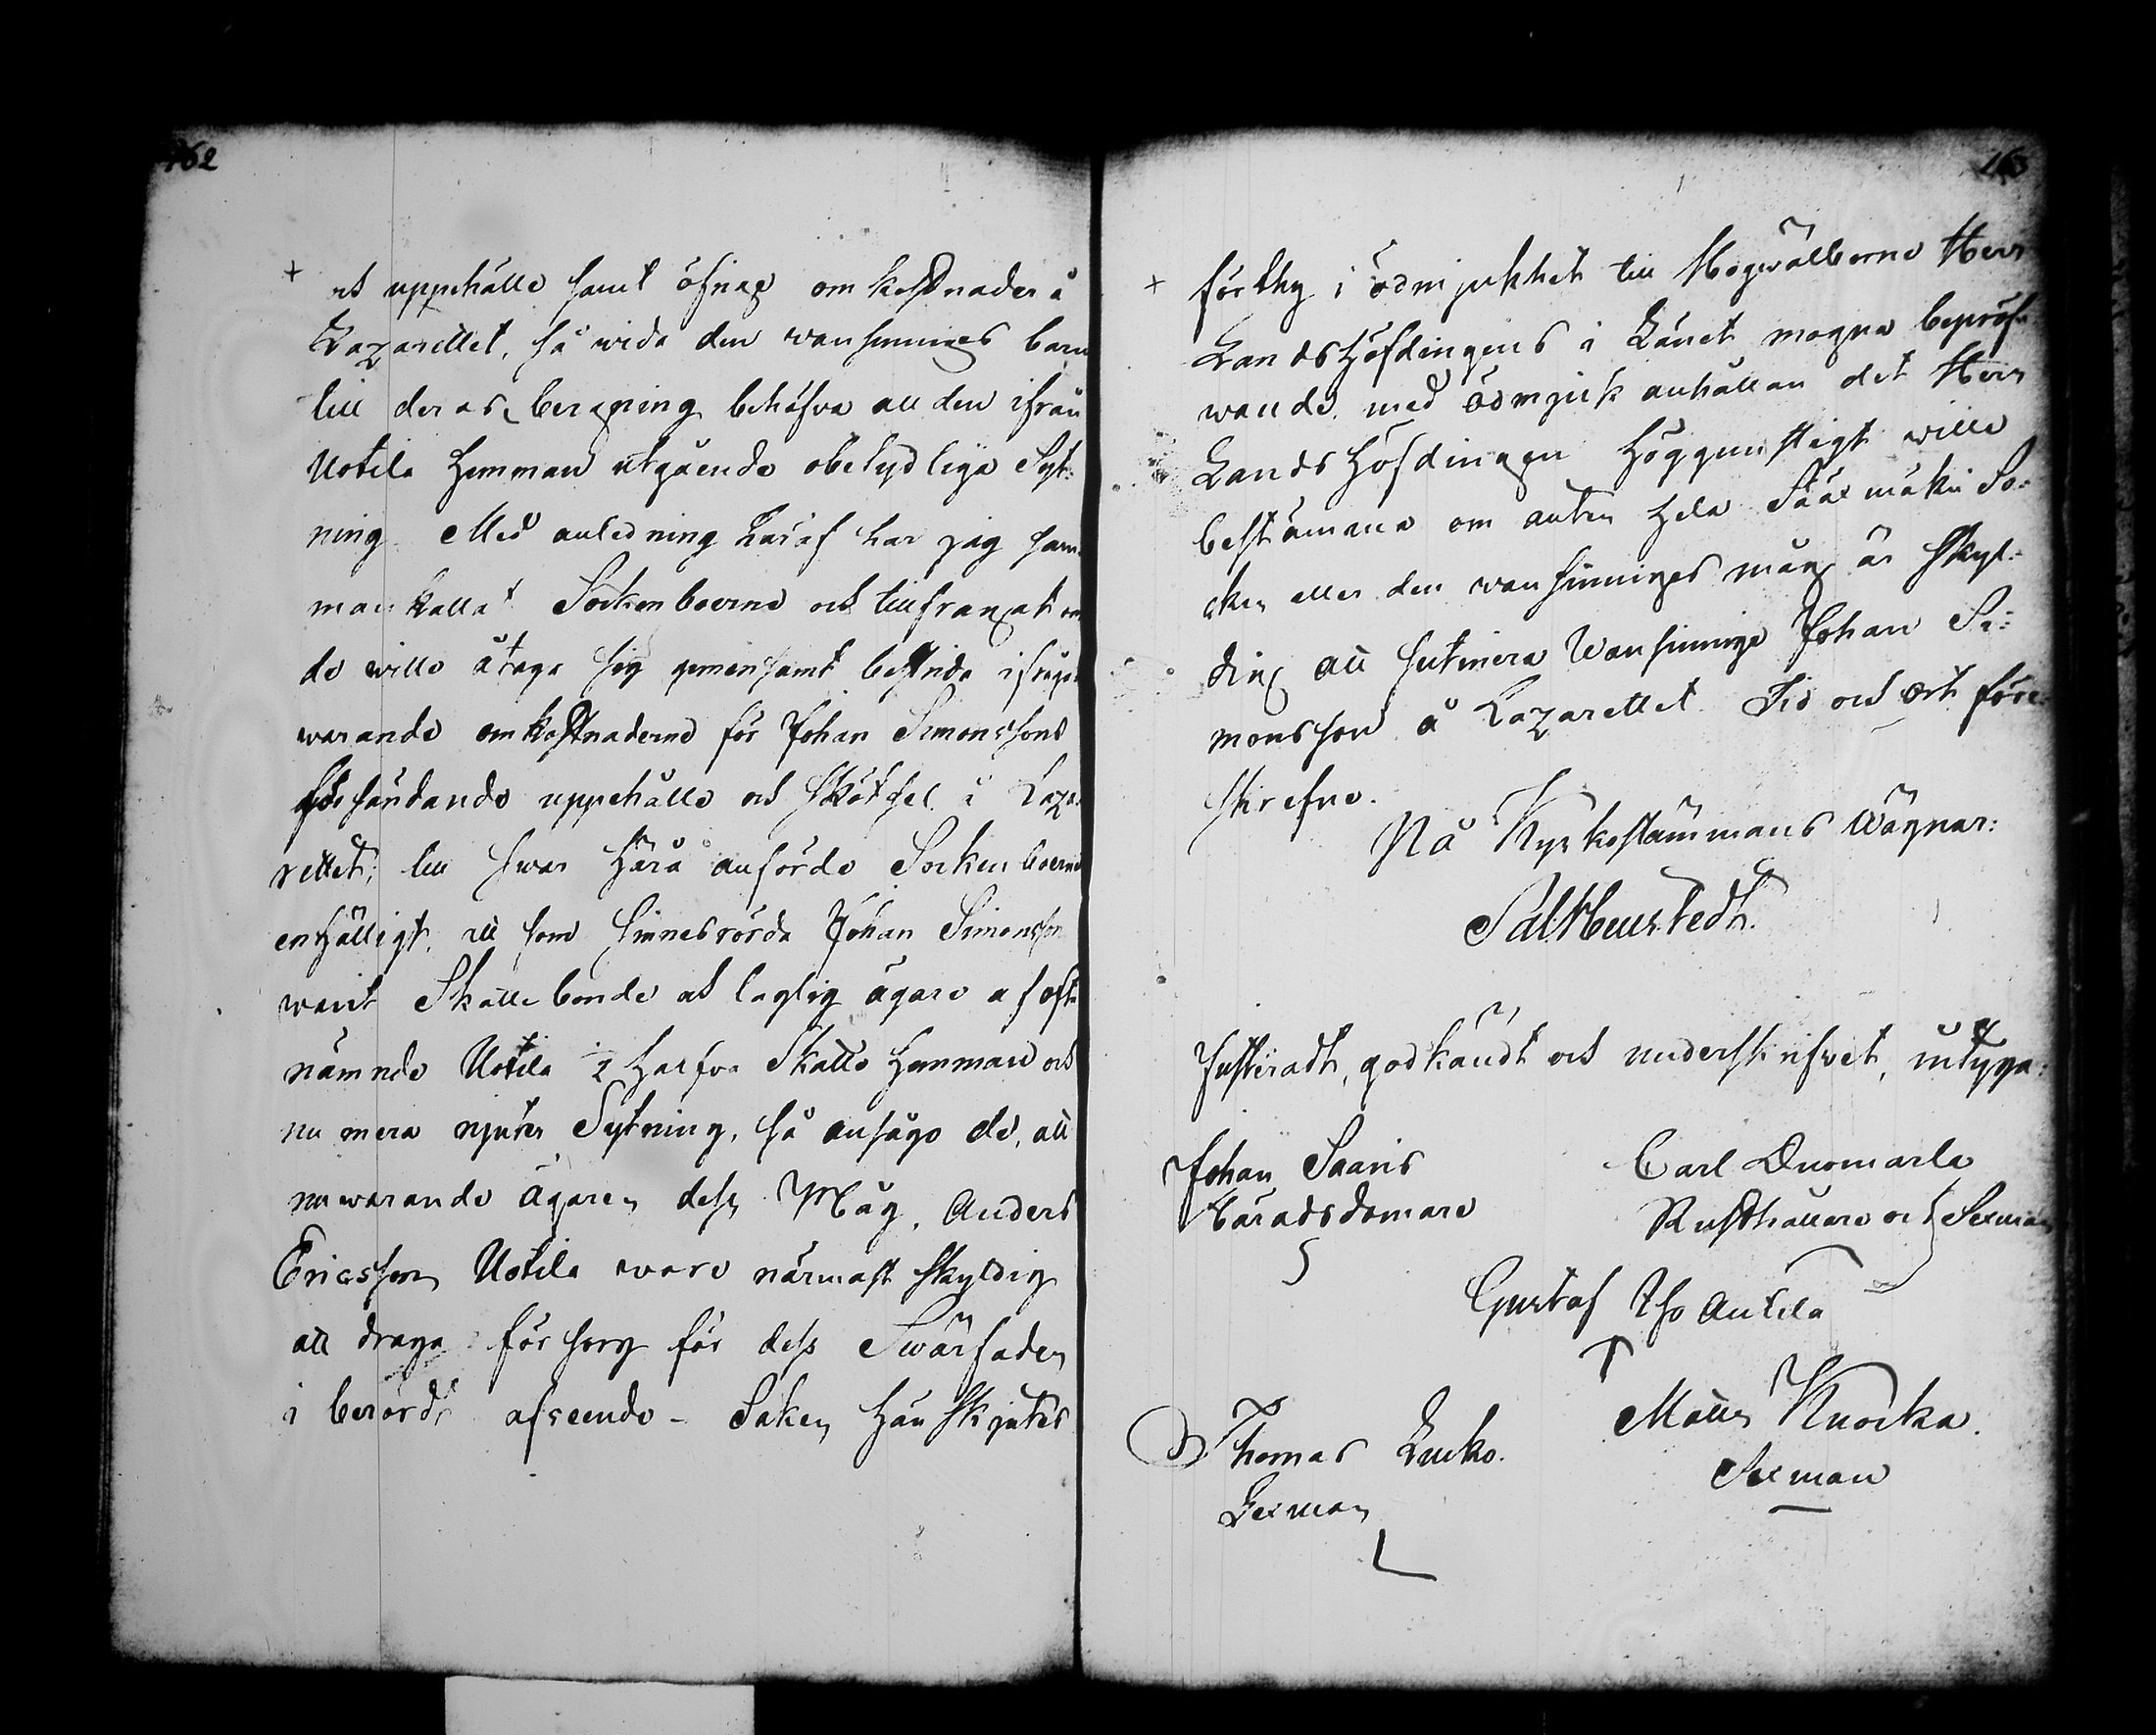 162
+ och uppehälle samt öfriga omkostnader å
Lazarettet, så vida den vansinniges barn
till deras bergning behöfva all den ifrån
Uotila Hemman utgående obetydliga Syt-
ning. Med anledning häraf har jag sam-
mankallat Sockenboerne och tillfrågat om
de wille åtaga sig gemensamt bestrida ifråga
warande omkostnaderne för Johan Simonssons
försändande uppehälle och skötsel å Laza-
rettet; till swar härå anförde Sockenboerne
enhälligt, att som sinnesrörda Johan Simonsson
warit Skattebonde och laglig ägare af ofta
nämnde Uotila 1/2 halfva Skatte Hemman och
nu mera njuter Sytning, så ansågo de, att
nuwarande ägaren dess Måg, Anders
Ericsson Uotila ware närmast skyldig
att draga försorg för dess Swärfader
i berörde afseende - Saken hänskjutes
163
+ förthy i ödmjukhet till Högwälborne Herr
Landshöfdingens i Länet mogna bepröf-
wande, med ödmjuk anhållan det Herr
Landshöfdingen höggunstigt wille
bestämma om antingen hela Sääxmäki So-
cken eller den wansinniges måg är skyl-
dig att sustinera Wansinnige Johan Si-
monsson å Lazarettet. Tid och ort före-
skrefne.
På Kyrkostämmans Wägnar:
Justeradt, godkändt och underskrifvet, intyga:
Johan Saaris
Häradsdomare
Carl Duomarla
Rusthållare och Sexman
Gustaf Iso Anttila
Thomas Lucko.
Sexman
Matts Knocka.
Sexman